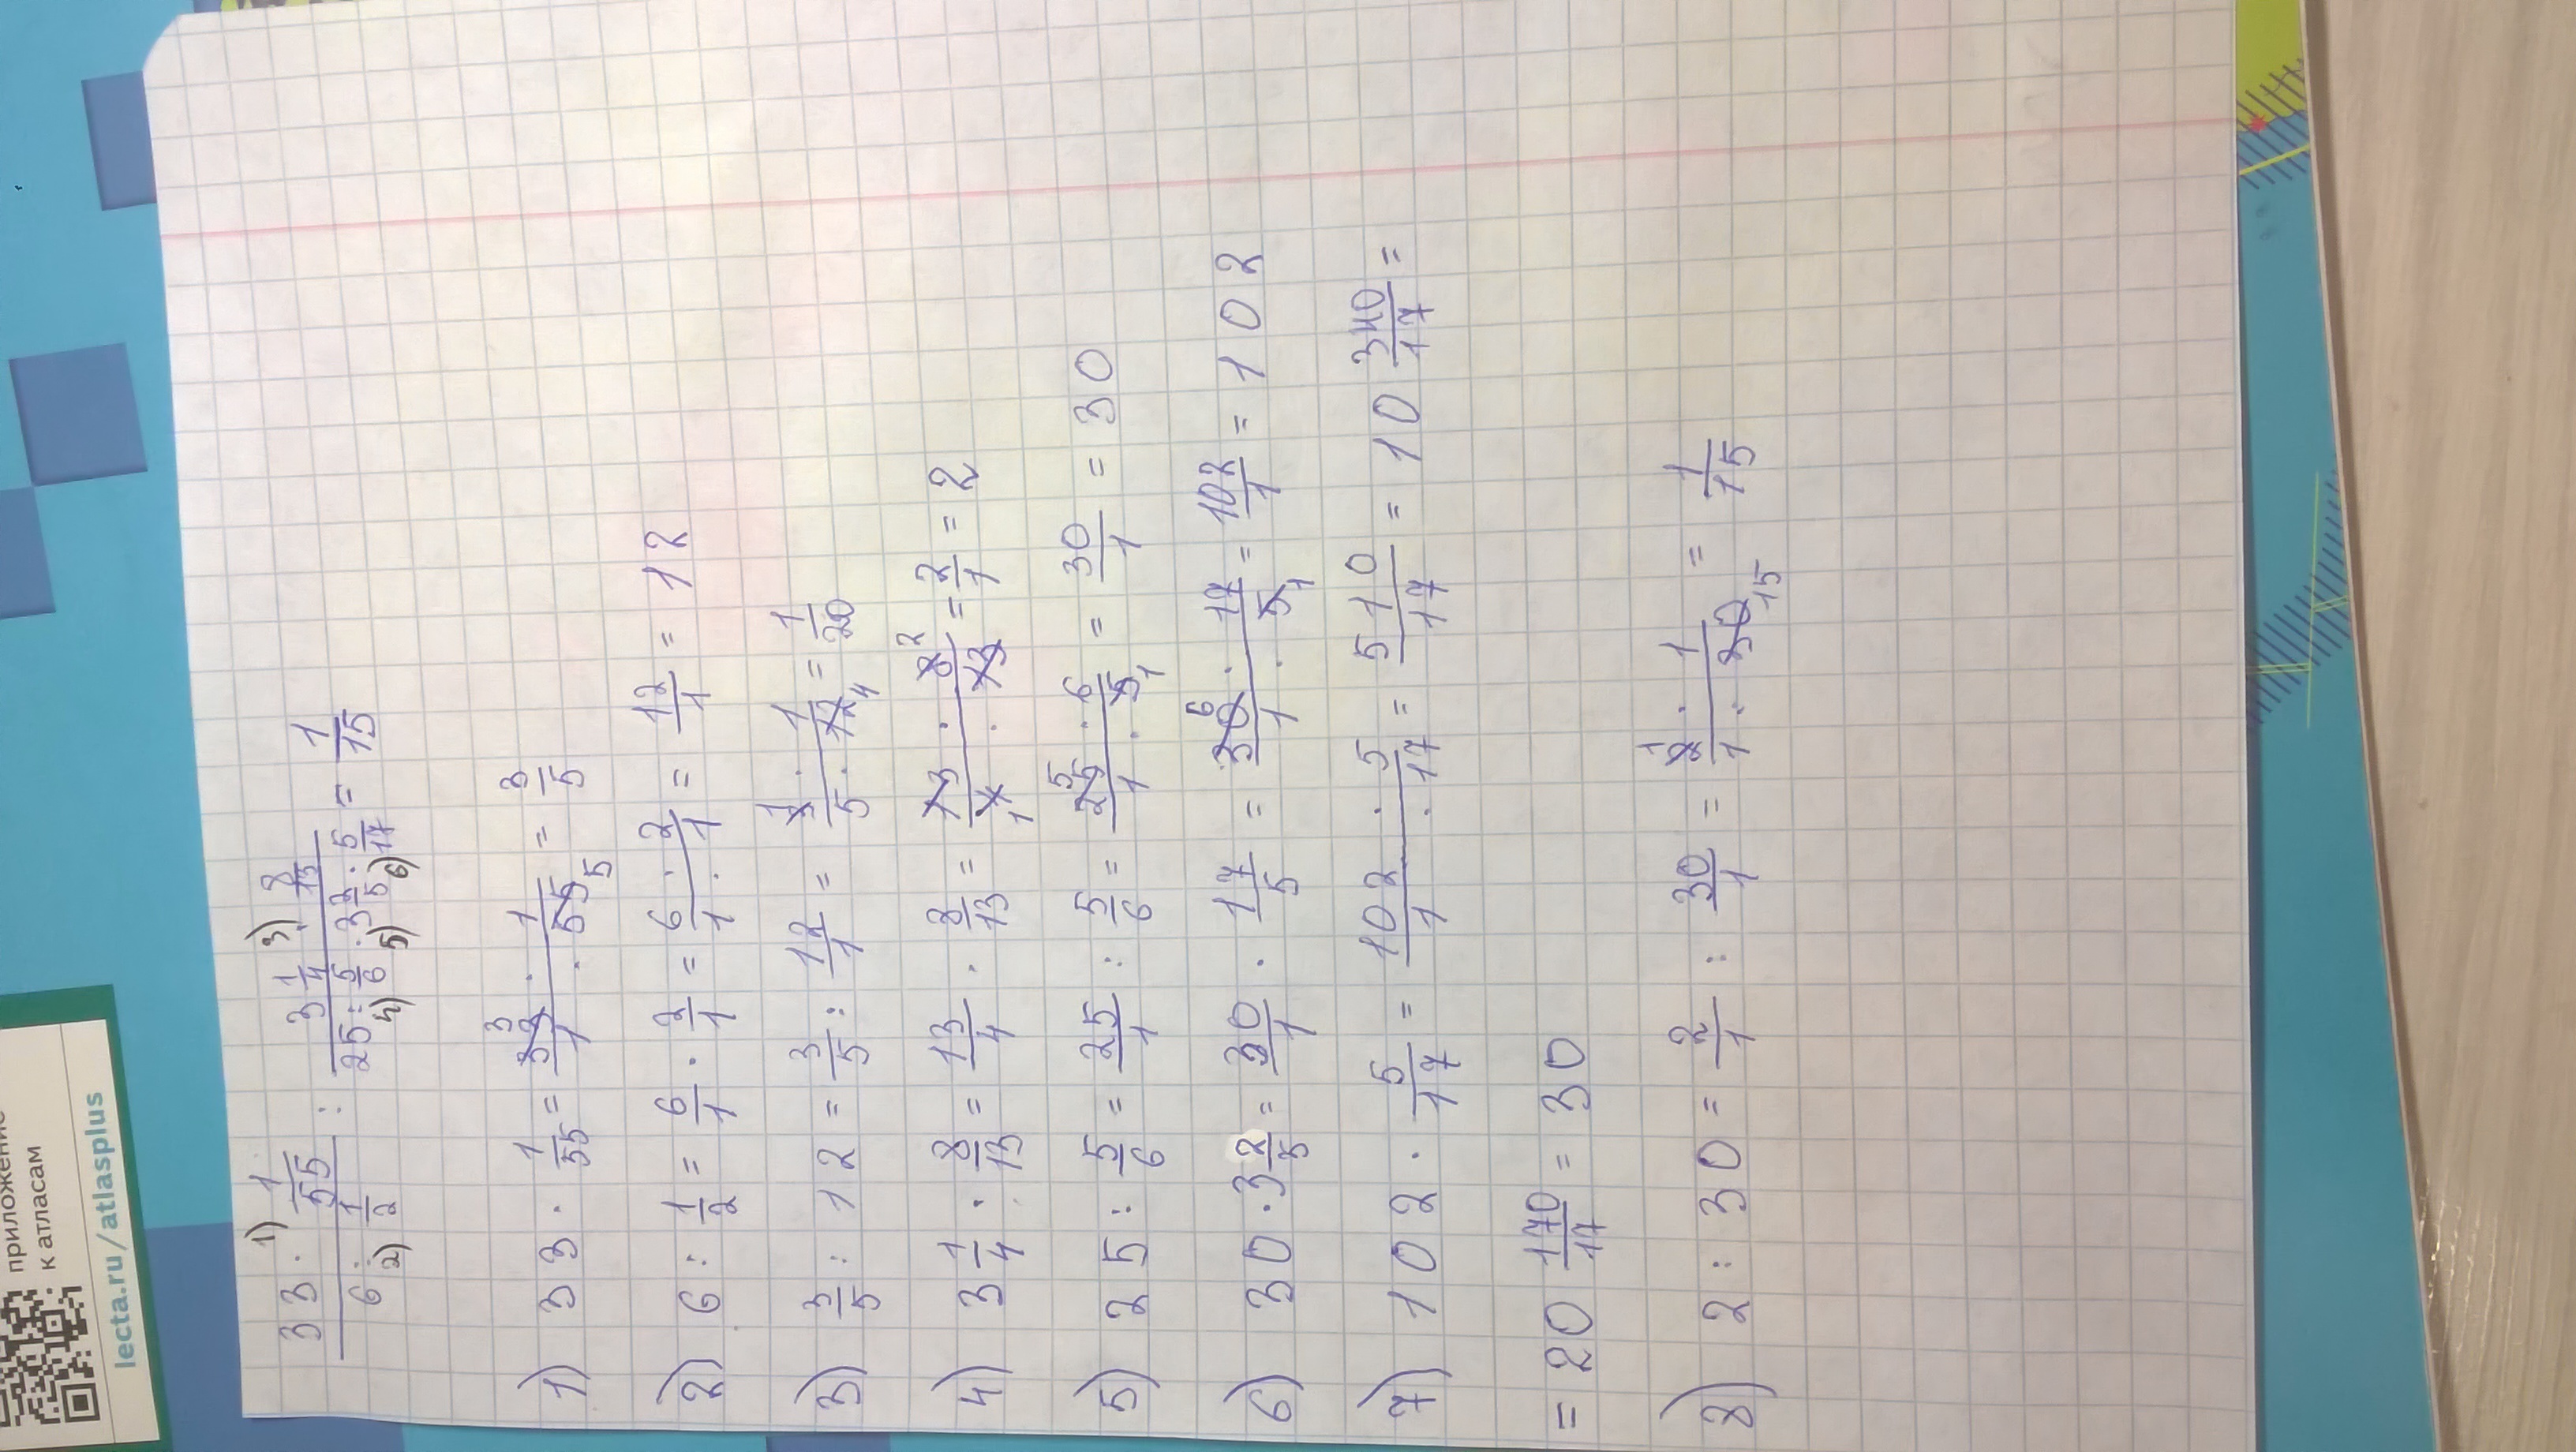 приложение
к атласам
lecta.ru/atlasplus
(33 · 1/55)/(6 : 1/2) : (3 1/4 · 8/13)/(25 : 5/6 · 3 2/5 · 5/17) = 1/15
1) 2) 3) 4) 5) 6)
1) 33 · 1/55 = (33 · 1)/(1 · 55) = 3/5
2) 6 : 1/2 = 6/1 · 2/1 = (6 · 2)/(1 · 1) = 12/1 = 12
3) 3/5 : 12 = 3/5 : 12/1 = (3 · 1)/(5 · 12) = 1/20
4) 3 1/4 · 8/13 = 13/4 · 8/13 = (13 · 8)/(4 · 13) = 2/1 = 2
5) 25 : 5/6 = 25/1 : 5/6 = (25 · 6)/(1 · 5) = 30/1 = 30
6) 30 · 3 2/5 = 30/1 · 17/5 = (30 · 17)/(1 · 5) = 102/1 = 102
7) 102 · 5/17 = (102 · 5)/(1 · 17) = 510/17 = 10 340/17 =
= 20 170/17 = 30
8) 2 : 30 = 2/1 : 30/1 = (2 · 1)/(1 · 30) = 1/15